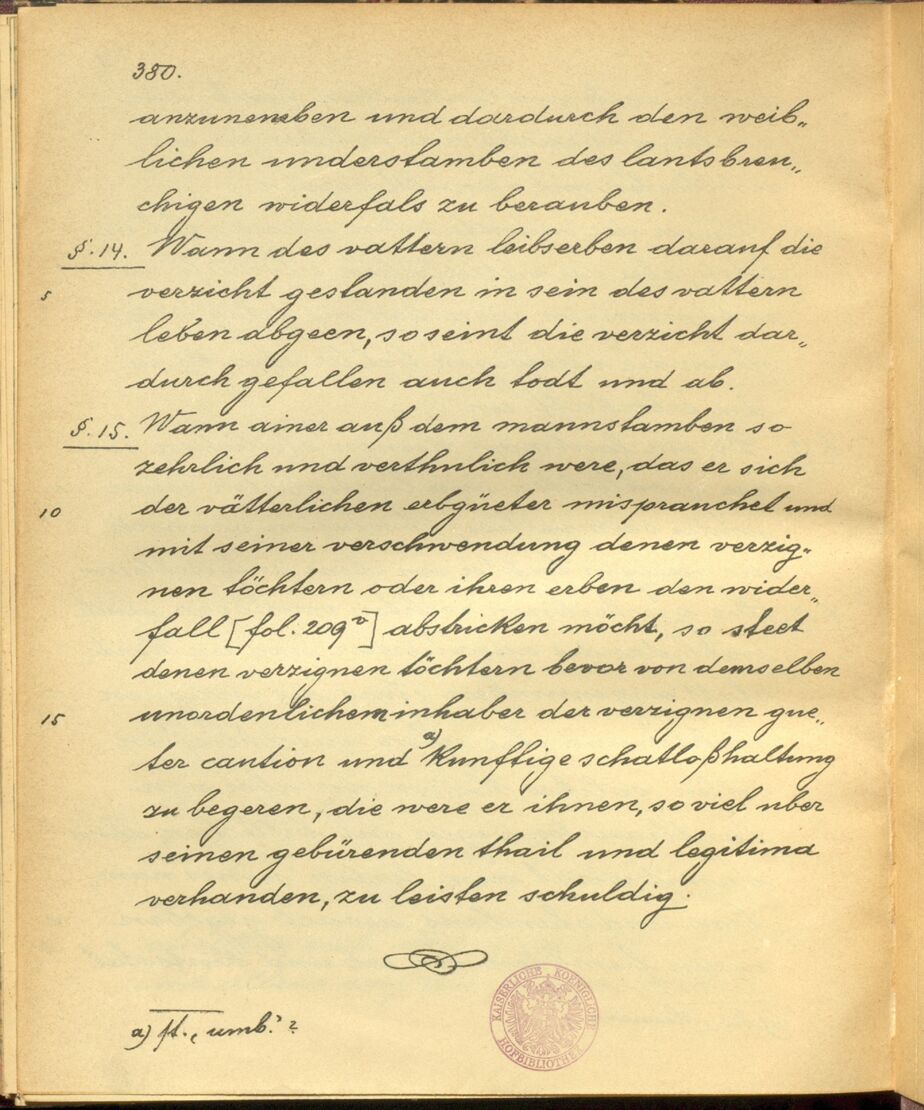 380.
anzunemben und dardurch den weib„
lichen understamben des lantsbreu„
chigen widerfals zu berauben.
§. 14. Wann des vattern leibserben darauf die
5 verzicht gestanden in sein des vattern
leben abgeen, so seint die verzicht dar„
durch gefallen auch todt und ab.
§. 15. Wann ainer auß dem mannstamben so
zehrlich und verthulich were, das er sich
10 der vätterlichen erbgüeter misprauchet und
mit seiner verschwendung denen verzig„
nen töchtern oder ihren erben den wider„
fall [fol. 209v] abstricken möcht, so steet
denen verzignen töchtern bevor von demselben
15 unordenlichem inhaber der verzignen gue„
ter caution und a) kunfftige schatloßhaltung
zu begeren, die were er ihnen, so viel uber
seinen gebürenden thail und legitima
verhanden, zu leisten schuldig.
a) st. „umb“?
KAISERLICHE KOENIGLICHE
HOFBIBLIOTHEK